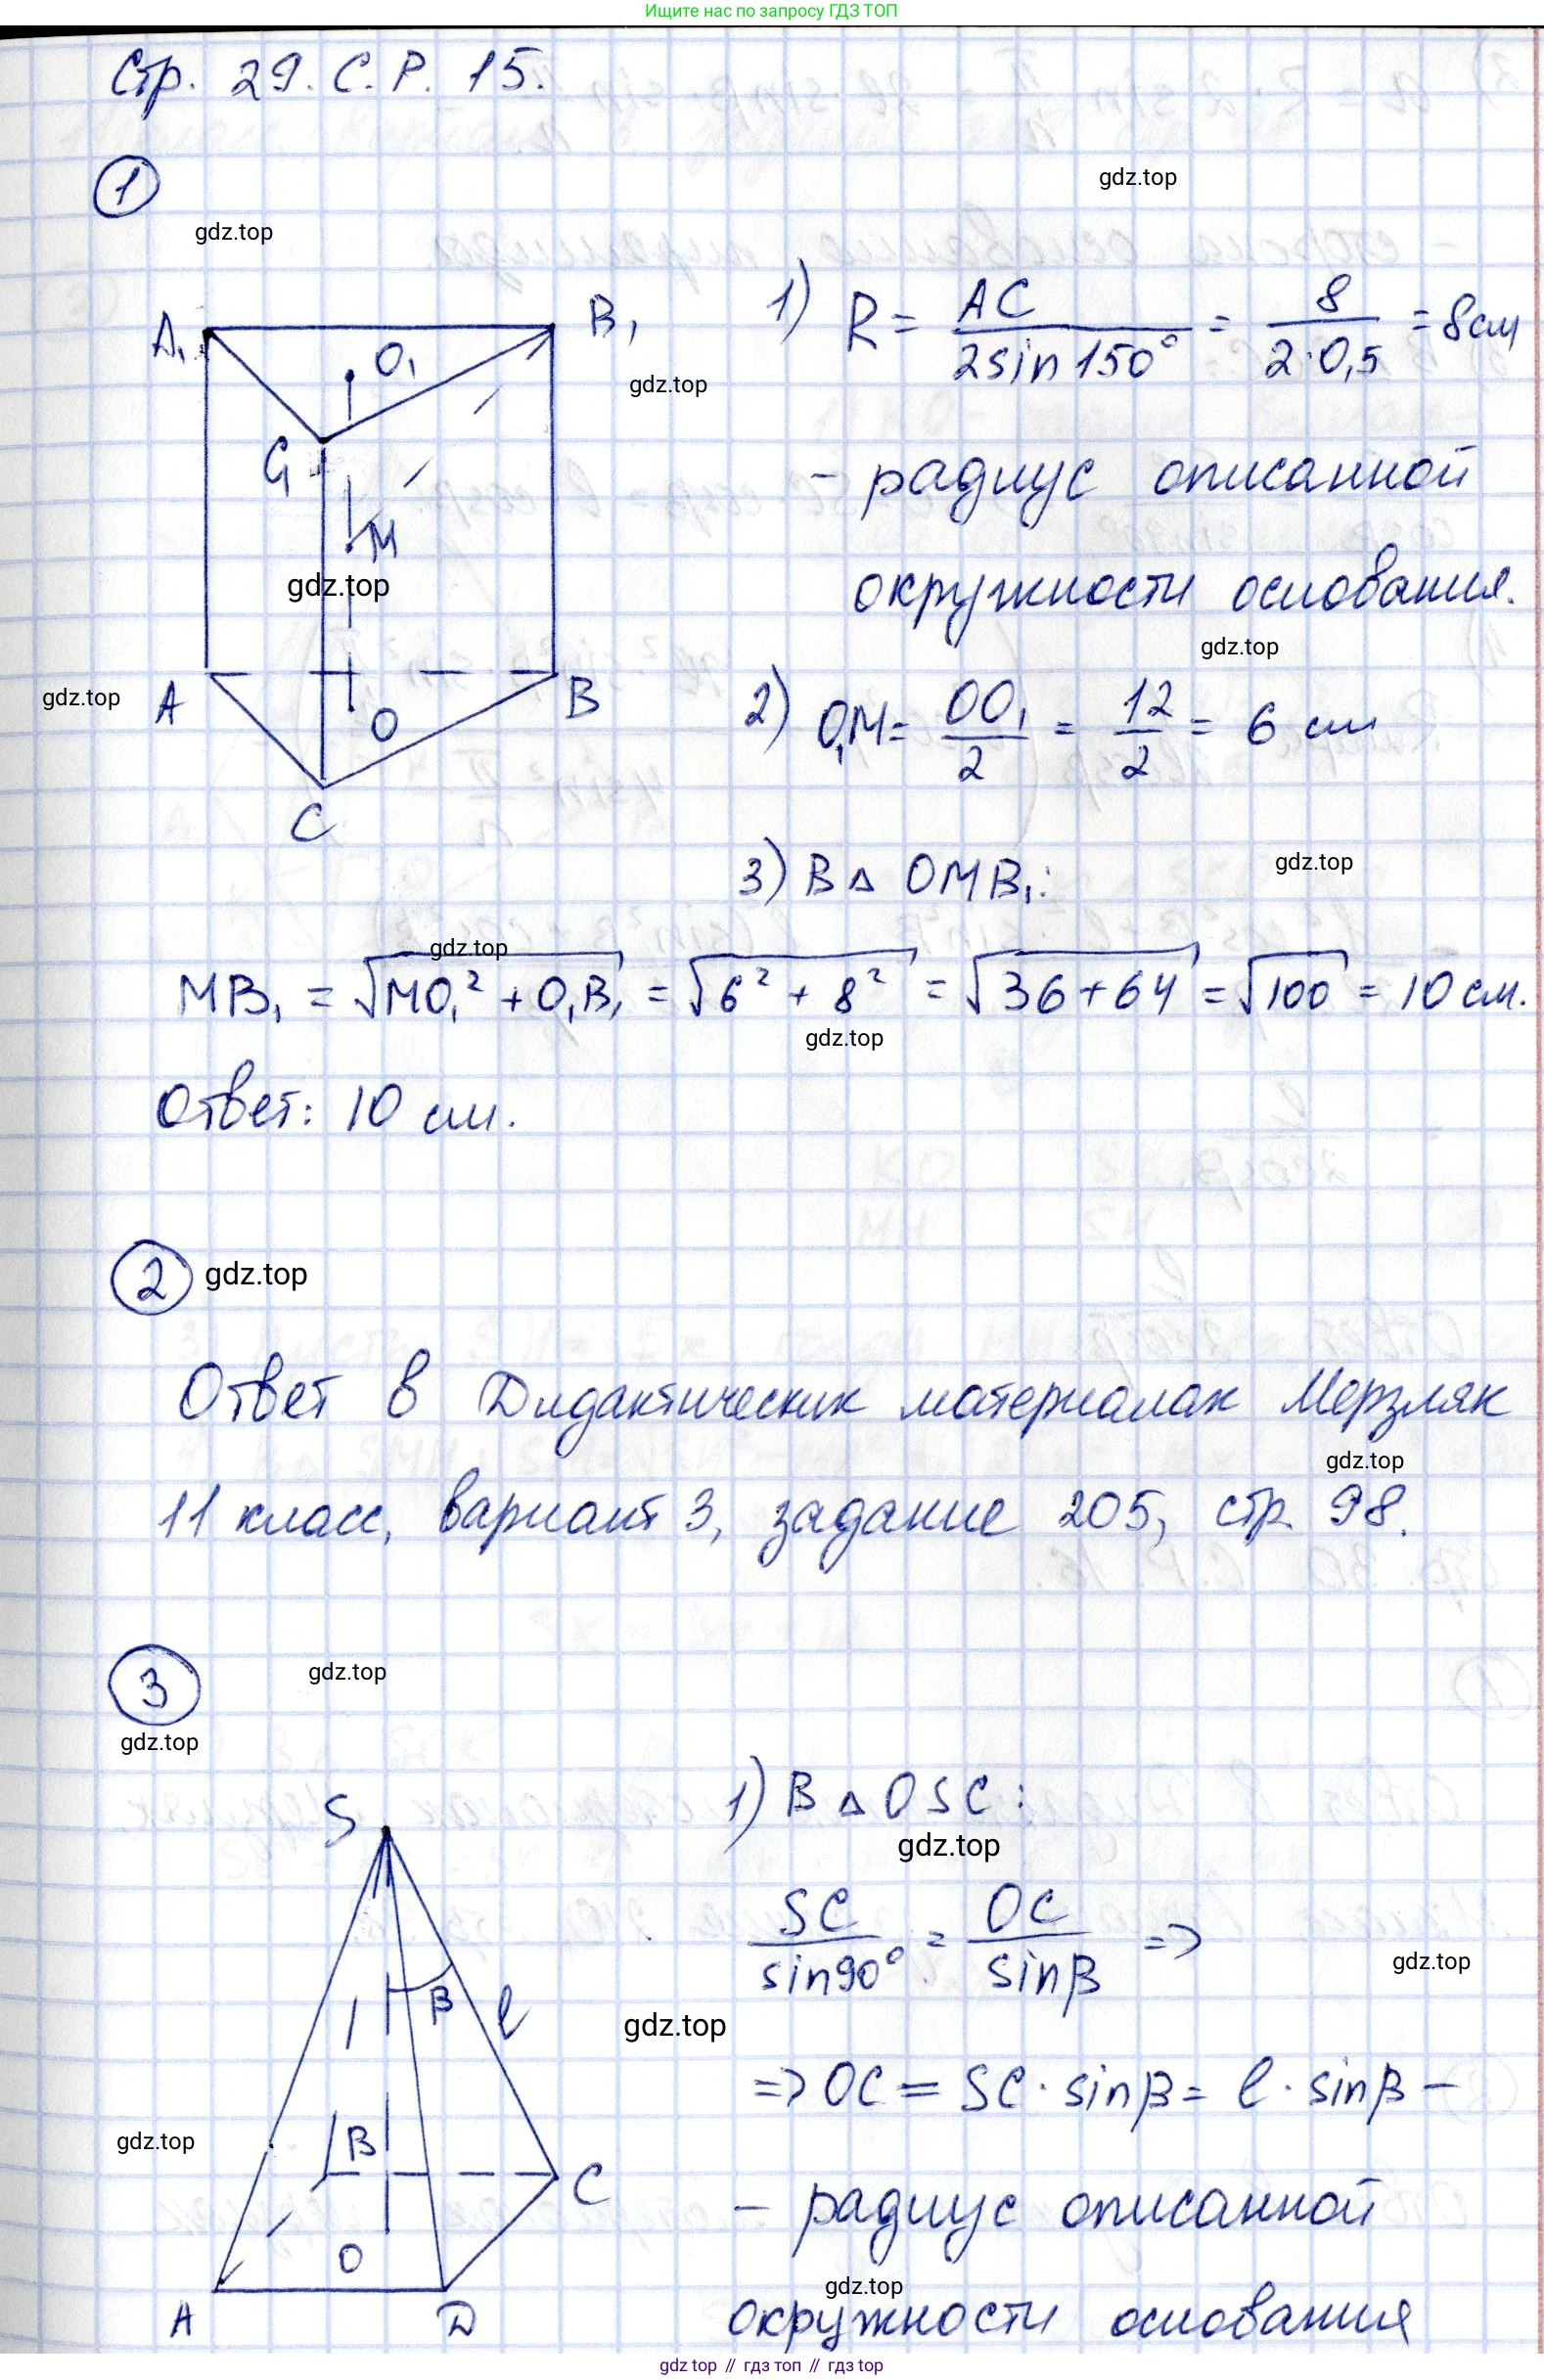 Ищите нас по запросу ГДЗ ТОП
Стр. 29. С. Р. 15.
1
gdz.top
gdz.top
A₁
O₁
B₁
C₁
M
A
O
B
C
gdz.top
gdz.top
gdz.top
1) R = AC / 2sin150° = 8 / 2·0,5 = 8см
- радиус описанной
окружности основания.
gdz.top
2) O₁M = OO₁ / 2 = 12 / 2 = 6 см
3) В △ OMB₁:
gdz.top
gdz.top
MB₁ = √MO₁² + O₁B₁ = √6² + 8² = √36+64 = √100 = 10 см.
gdz.top
Ответ: 10 см.
2
gdz.top
Ответ в Дидактических материалах Мерзляк
gdz.top
11 класс, вариант 3, задание 205, стр. 98.
3
gdz.top
gdz.top
S
β
ℓ
B
C
O
A
D
gdz.top
1) В △ OSC:
gdz.top
SC / sin90° = OC / sinβ =>
gdz.top
gdz.top
=> OC = SC · sinβ = ℓ · sinβ –
- радиус описанной
gdz.top
окружности основания
gdz top // гдз топ // gdz top